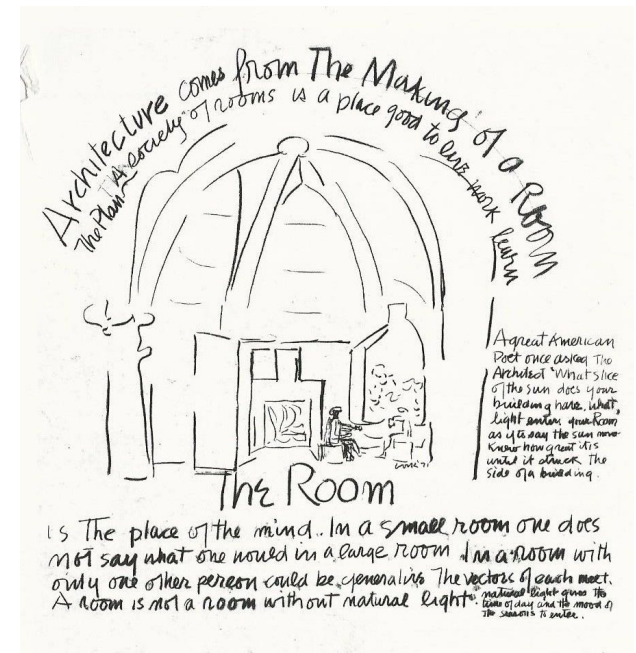 Architecture comes from The Making of a Room
The Plan – A society of rooms is a place good to live work learn
A great American
Poet once asked The
Architect "What slice
of the sun does your
building have, what
light enters your Room
as if to say the sun never
knew how great it is
until it struck the
side of a building.
The Room
is The place of the mind. In a small room one does
not say what one would in a large room In a room with
only one other person could be generative The vectors of each meet.
A room is not a room without natural light. natural light gives the
time of day and the mood of
The seasons to enter.